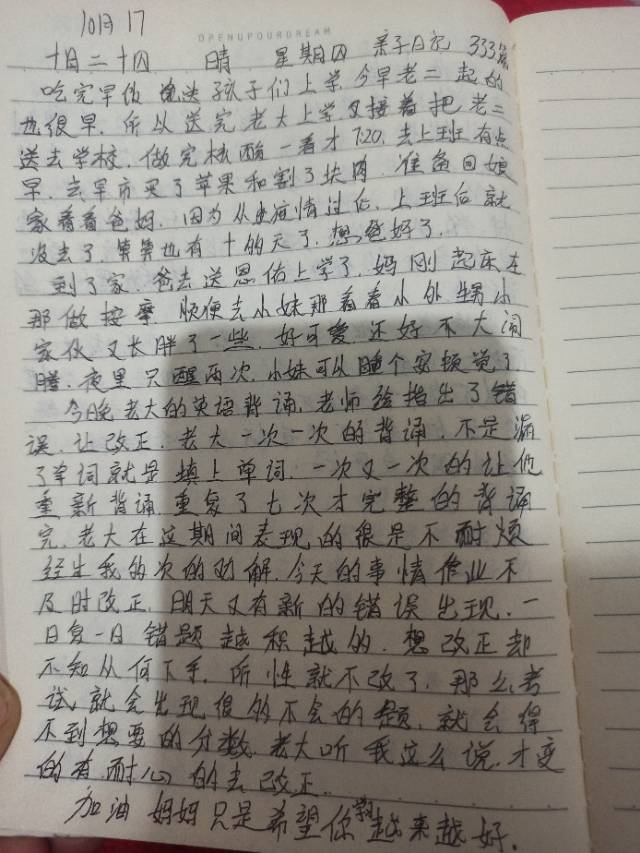 10月17
OPENUPOURDREAM
十月二十四 晴 星期四 亲子日记 333篇
吃完早饭 送孩子们上学 今早老二起的
也很早. 所以送完老大上学又接着把老二
送去学校. 做完核酸一看才7:20. 去上班有点
早. 去早市买了苹果和割了块肉 准备回娘
家看看爸妈. 因为从疫情过后. 上班后就
没去了. 算算也有十多天了. 想爸妈了.
到了家. 爸去送恩佑上学了. 妈刚起床在
那做按摩 顺便去小妹那看看小外甥 小
家伙又长胖了一些. 好可爱. 还好不大闹
腾. 夜里只醒两次. 小妹可以睡个安顿觉了
今晚老大的英语背诵. 老师给指出了错
误. 让改正. 老大一次一次的背诵. 不是漏
了单词就是填上单词. 一次又一次的让他
重新背诵. 重复了七次才完整的背诵
完. 老大在这期间表现的很是不耐烦
经过我多次的劝解. 今天的事情作业不
及时改正. 明天又有新的错误出现. 一
日复一日 错题越积越多. 想改正却
不知从何下手. 所性就不改了. 那么考
试 就会出现很多不会的题. 就会得
不到想要的分数. 老大听我这么说. 才变
的有耐心的去改正.
加油 妈妈只是希望你 越来越好.